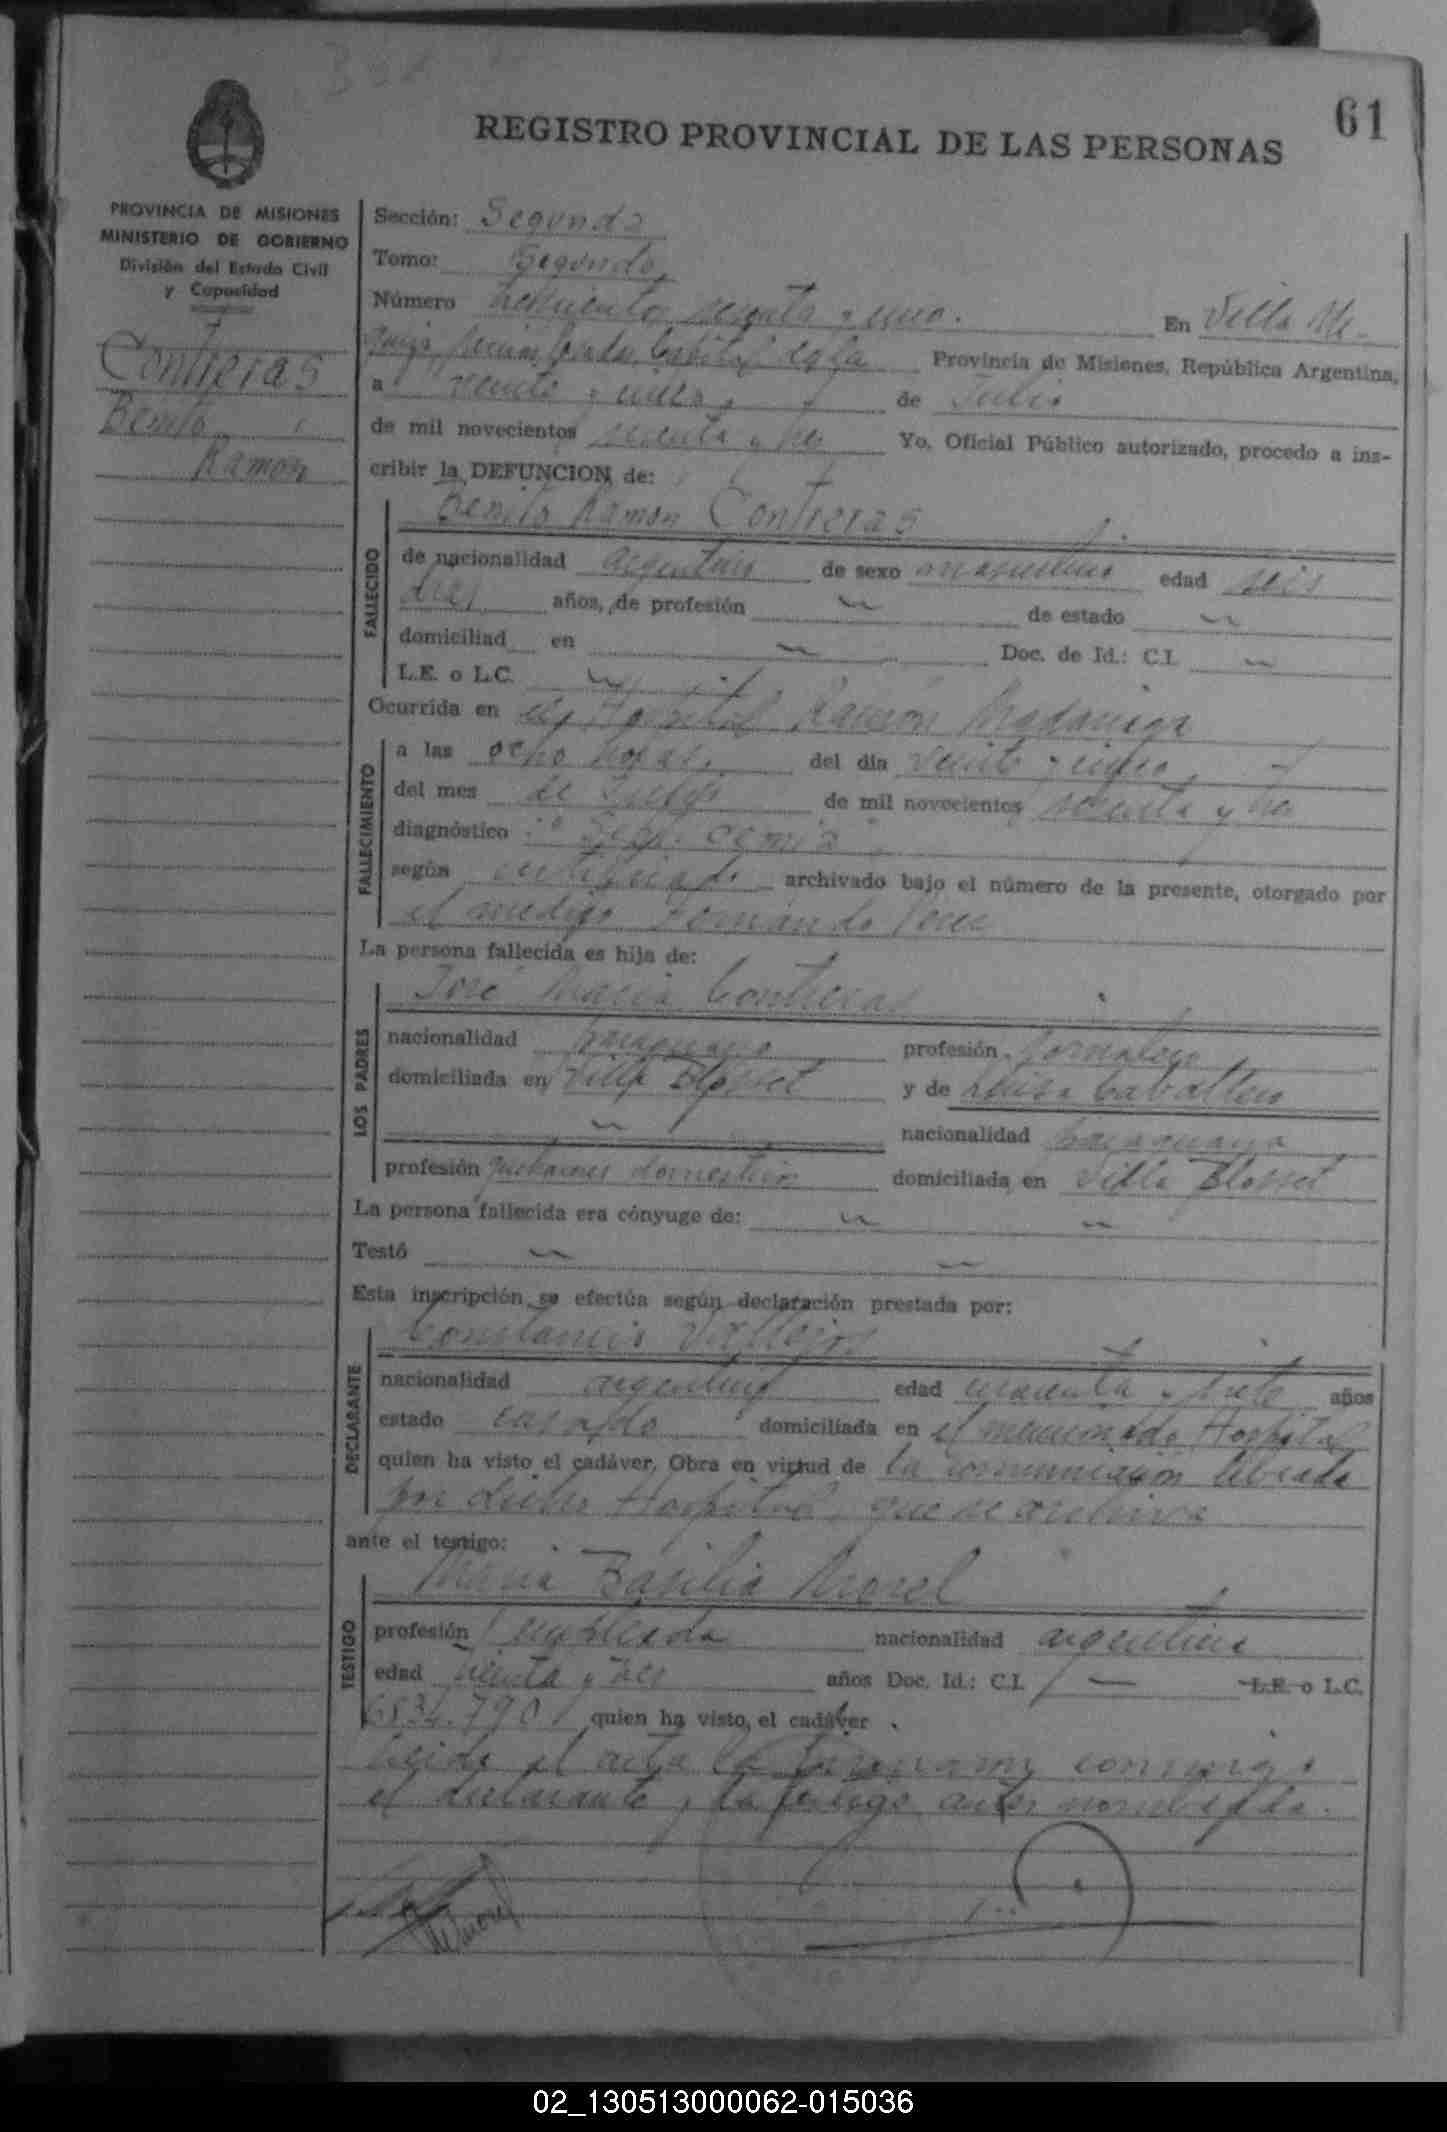 61
REGISTRO PROVINCIAL DE LAS PERSONAS
PROVINCIA DE MISIONES
MINISTERIO DE GOBIERNO
División del Estado Civil
y Capacidad
Contreras
Benito
Ramón
Sección: Segunda
Tomo: Segundo
Número trescientos sesenta y uno. En Villa
Capital Provincia de Misiones, República Argentina,
a veinte y de Julio
de mil novecientos sesenta y tres Yo, Oficial Público autorizado, procedo a ins-
cribir la DEFUNCION de:
FALLECIDO
Benito Ramón Contreras
de nacionalidad argentino de sexo masculino edad seis
días años, de profesión de estado
domiciliad en Doc. de Id.: C.I.
L.E. o L.C.
Ocurrida en el Hospital Ramón Madariaga
FALLECIMIENTO
a las ocho horas, del día veinte y
del mes de Julio de mil novecientos sesenta y tres
diagnóstico "
según certificado archivado bajo el número de la presente, otorgado por
el médico Fernando
La persona fallecida es hija de:
LOS PADRES
José María Contreras
nacionalidad paraguayo profesión jornalero
domiciliada en Villa Blosset y de Luisa Caballero
nacionalidad paraguaya
profesión quehaceres domésticos domiciliada en Villa Blosset
La persona fallecida era cónyuge de:
Testó
Esta inscripción se efectúa según declaración prestada por:
DECLARANTE
Constancio Vallejos
nacionalidad argentino edad cuarenta y siete años
estado casado domiciliada en el mencionado Hospital
quien ha visto el cadáver. Obra en virtud de la comunicación librada
por dicho Hospital, que se archiva
ante el testigo:
TESTIGO
María Basilia Morel
profesión empleada nacionalidad argentina
edad treinta y tres años Doc. Id.: C.I. — L.E. o L.C.
quien ha visto el cadáver.
Leída el acta la firmaron conmigo
el declarante y la testigo antes nombrada.
02_130513000062-015036